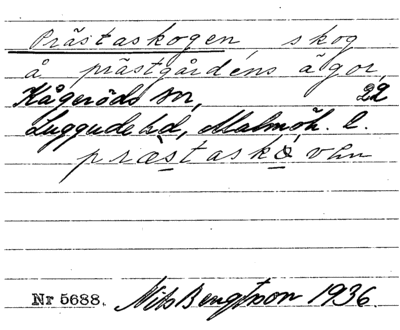 Prästaskogen, skog
å prästgårdens ägor,
Kågeröds sn, 22
Luggude hd, Malmöh. l.
præstaskövən
Nr 5688. Nils Bengtsson 1936.